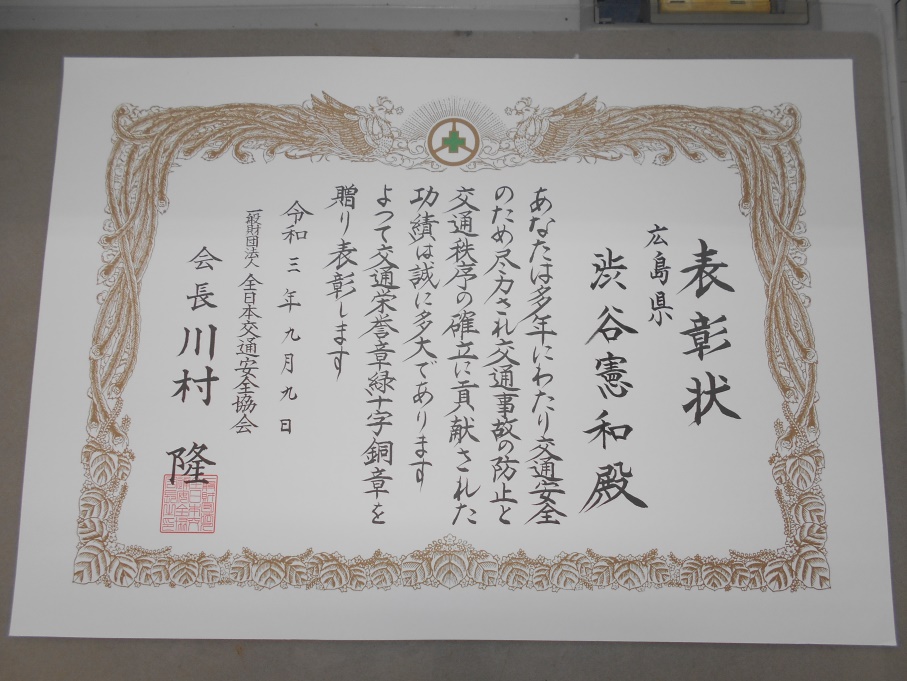 表彰状
広島県
渋谷憲和殿
あなたは多年にわたり交通安全
のため尽力され交通事故の防止と
交通秩序の確立に貢献された
功績は誠に多大であります
よって交通栄誉章緑十字銅章を
贈り表彰します
令和三年九月九日
一般財団法人全日本交通安全協会
会長川村隆